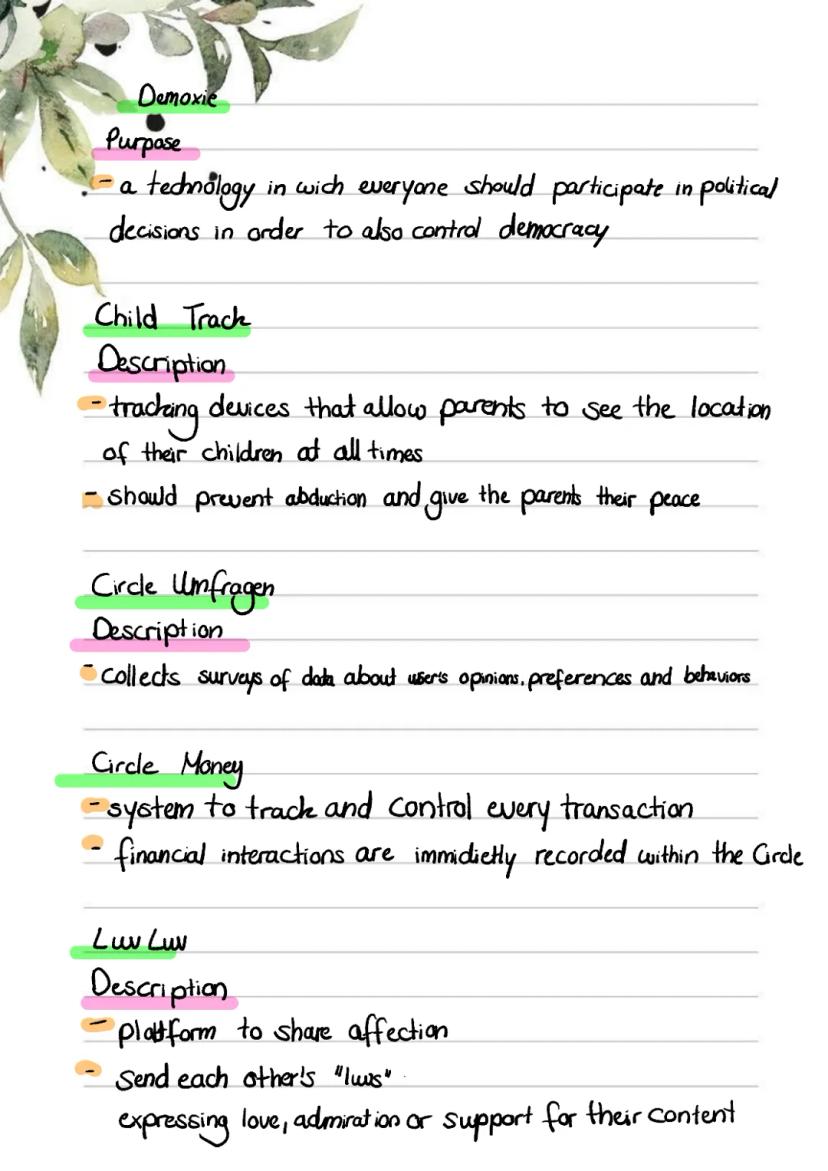 Demoxie
Purpose
- a technology in wich everyone should participate in political
decisions in order to also control democracy
Child Track
Description
- tracking devices that allow parents to see the location
of their children at all times
- should prevent abduction and give the parents their peace
Circle Umfragen
Description
- collects surveys of data about user's opinions, preferences and behaviors
Circle Money
- system to track and control every transaction
- financial interactions are immidietly recorded within the Circle
Luv Luv
Description
- plattform to share affection
- send each other's "luvs"
expressing love, admiration or support for their content